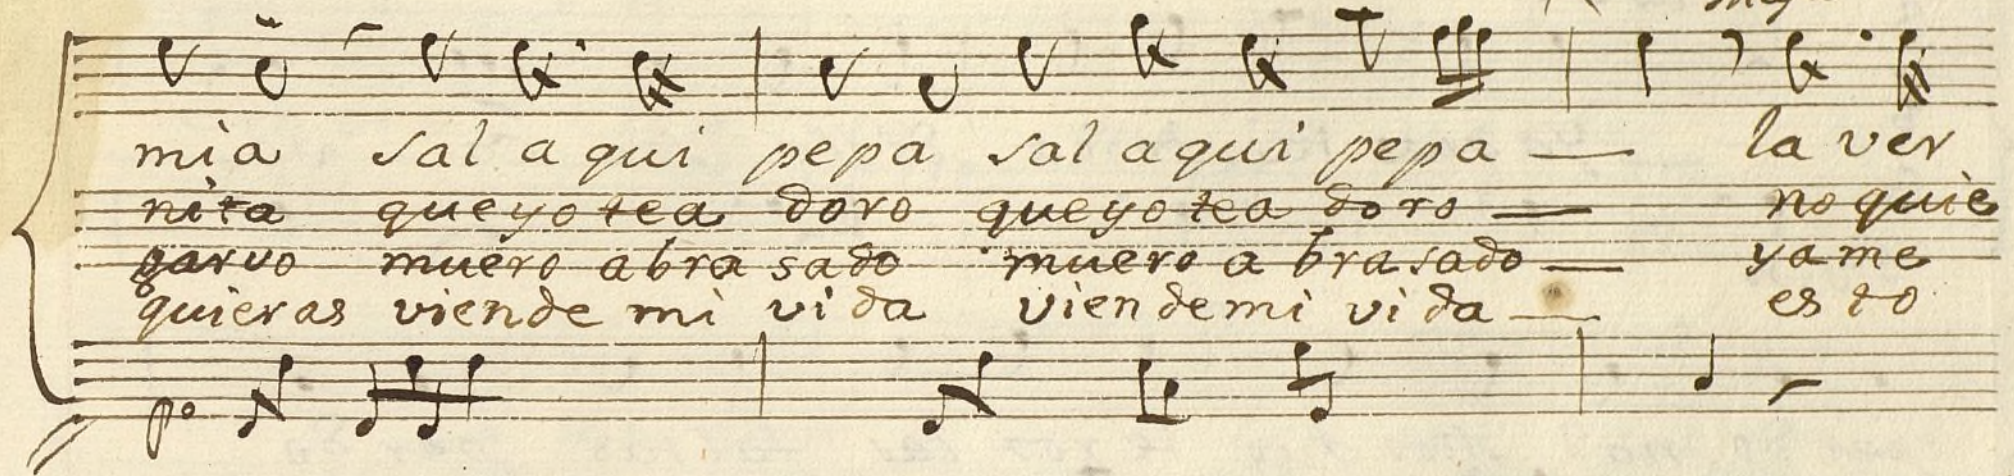 mia sal a qui pepa sal aqui pepa — la ver
nita queyo tea doro queyo tea doro — no quie
garvo muero abra sado muero a brasado — ya me
quieras viende mi vida viendemi vida — es to
po